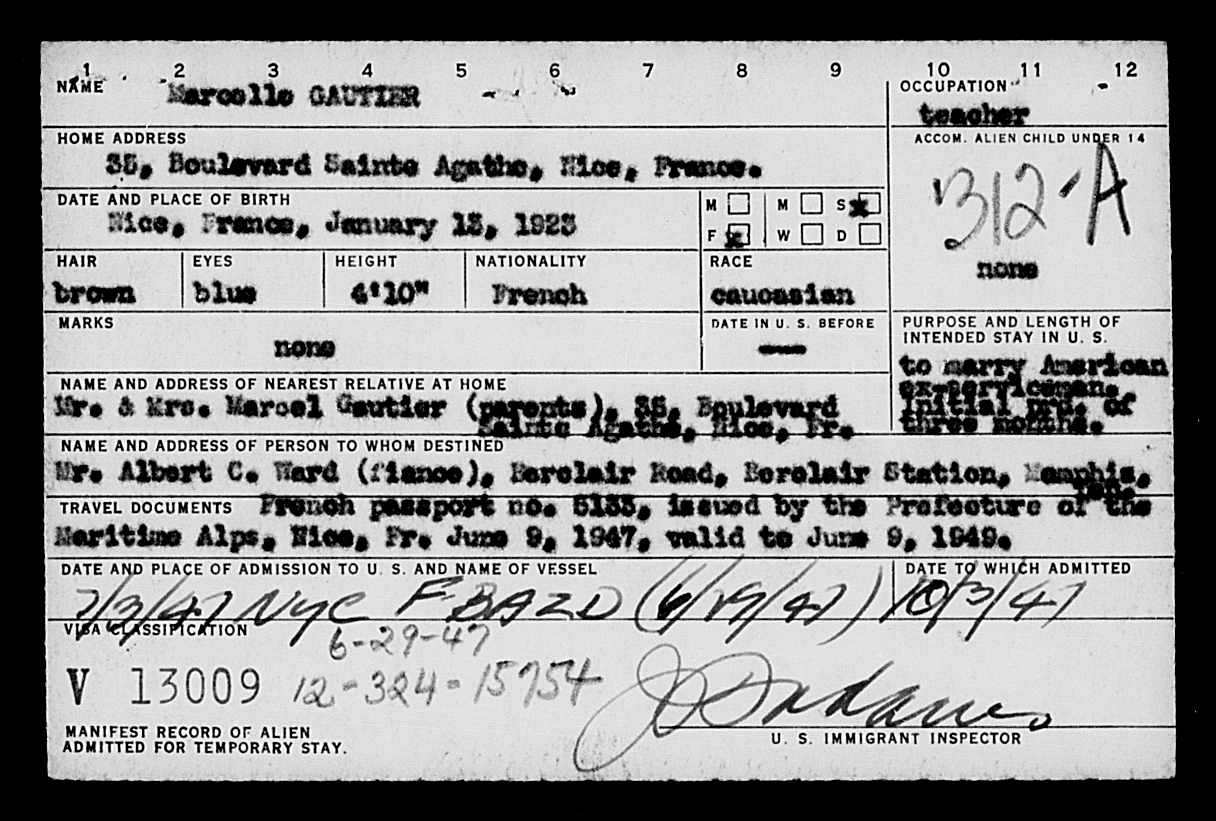 1 2 3 4 5 6 7 8 9 10 11 12
NAME Marcelle GAUTIER
OCCUPATION
teacher
HOME ADDRESS
35, Boulevard Sainte Agathe, Nice, France.
ACCOM. ALIEN CHILD UNDER 14
312-A
none
DATE AND PLACE OF BIRTH
Nice, France, January 13, 1923
M M S x
F x W D
HAIR EYES HEIGHT NATIONALITY RACE
brown blue 4'10" French caucasian
MARKS
none
DATE IN U. S. BEFORE
—
PURPOSE AND LENGTH OF
INTENDED STAY IN U. S.
to marry American
ex-serviceman.
Initial prd. of
three months.
NAME AND ADDRESS OF NEAREST RELATIVE AT HOME
Mr. & Mrs. Marcel Gautier (parents), 35, Boulevard
Sainte Agathe, Nice, Fr.
NAME AND ADDRESS OF PERSON TO WHOM DESTINED
Mr. Albert C. Ward (fiance), Berclair Road, Berclair Station, Memphis,
TRAVEL DOCUMENTS French passport no. 5133, issued by the Prefecture of the
Maritime Alps, Nice, Fr. June 9, 1947, valid to June 9, 1949.
DATE AND PLACE OF ADMISSION TO U. S. AND NAME OF VESSEL
7/3/47 NYC F-BAZD (6/19/47)
DATE TO WHICH ADMITTED
10/3/47
VISA CLASSIFICATION
6-29-47
V 13009 12-324-15754
MANIFEST RECORD OF ALIEN
ADMITTED FOR TEMPORARY STAY.
U. S. IMMIGRANT INSPECTOR